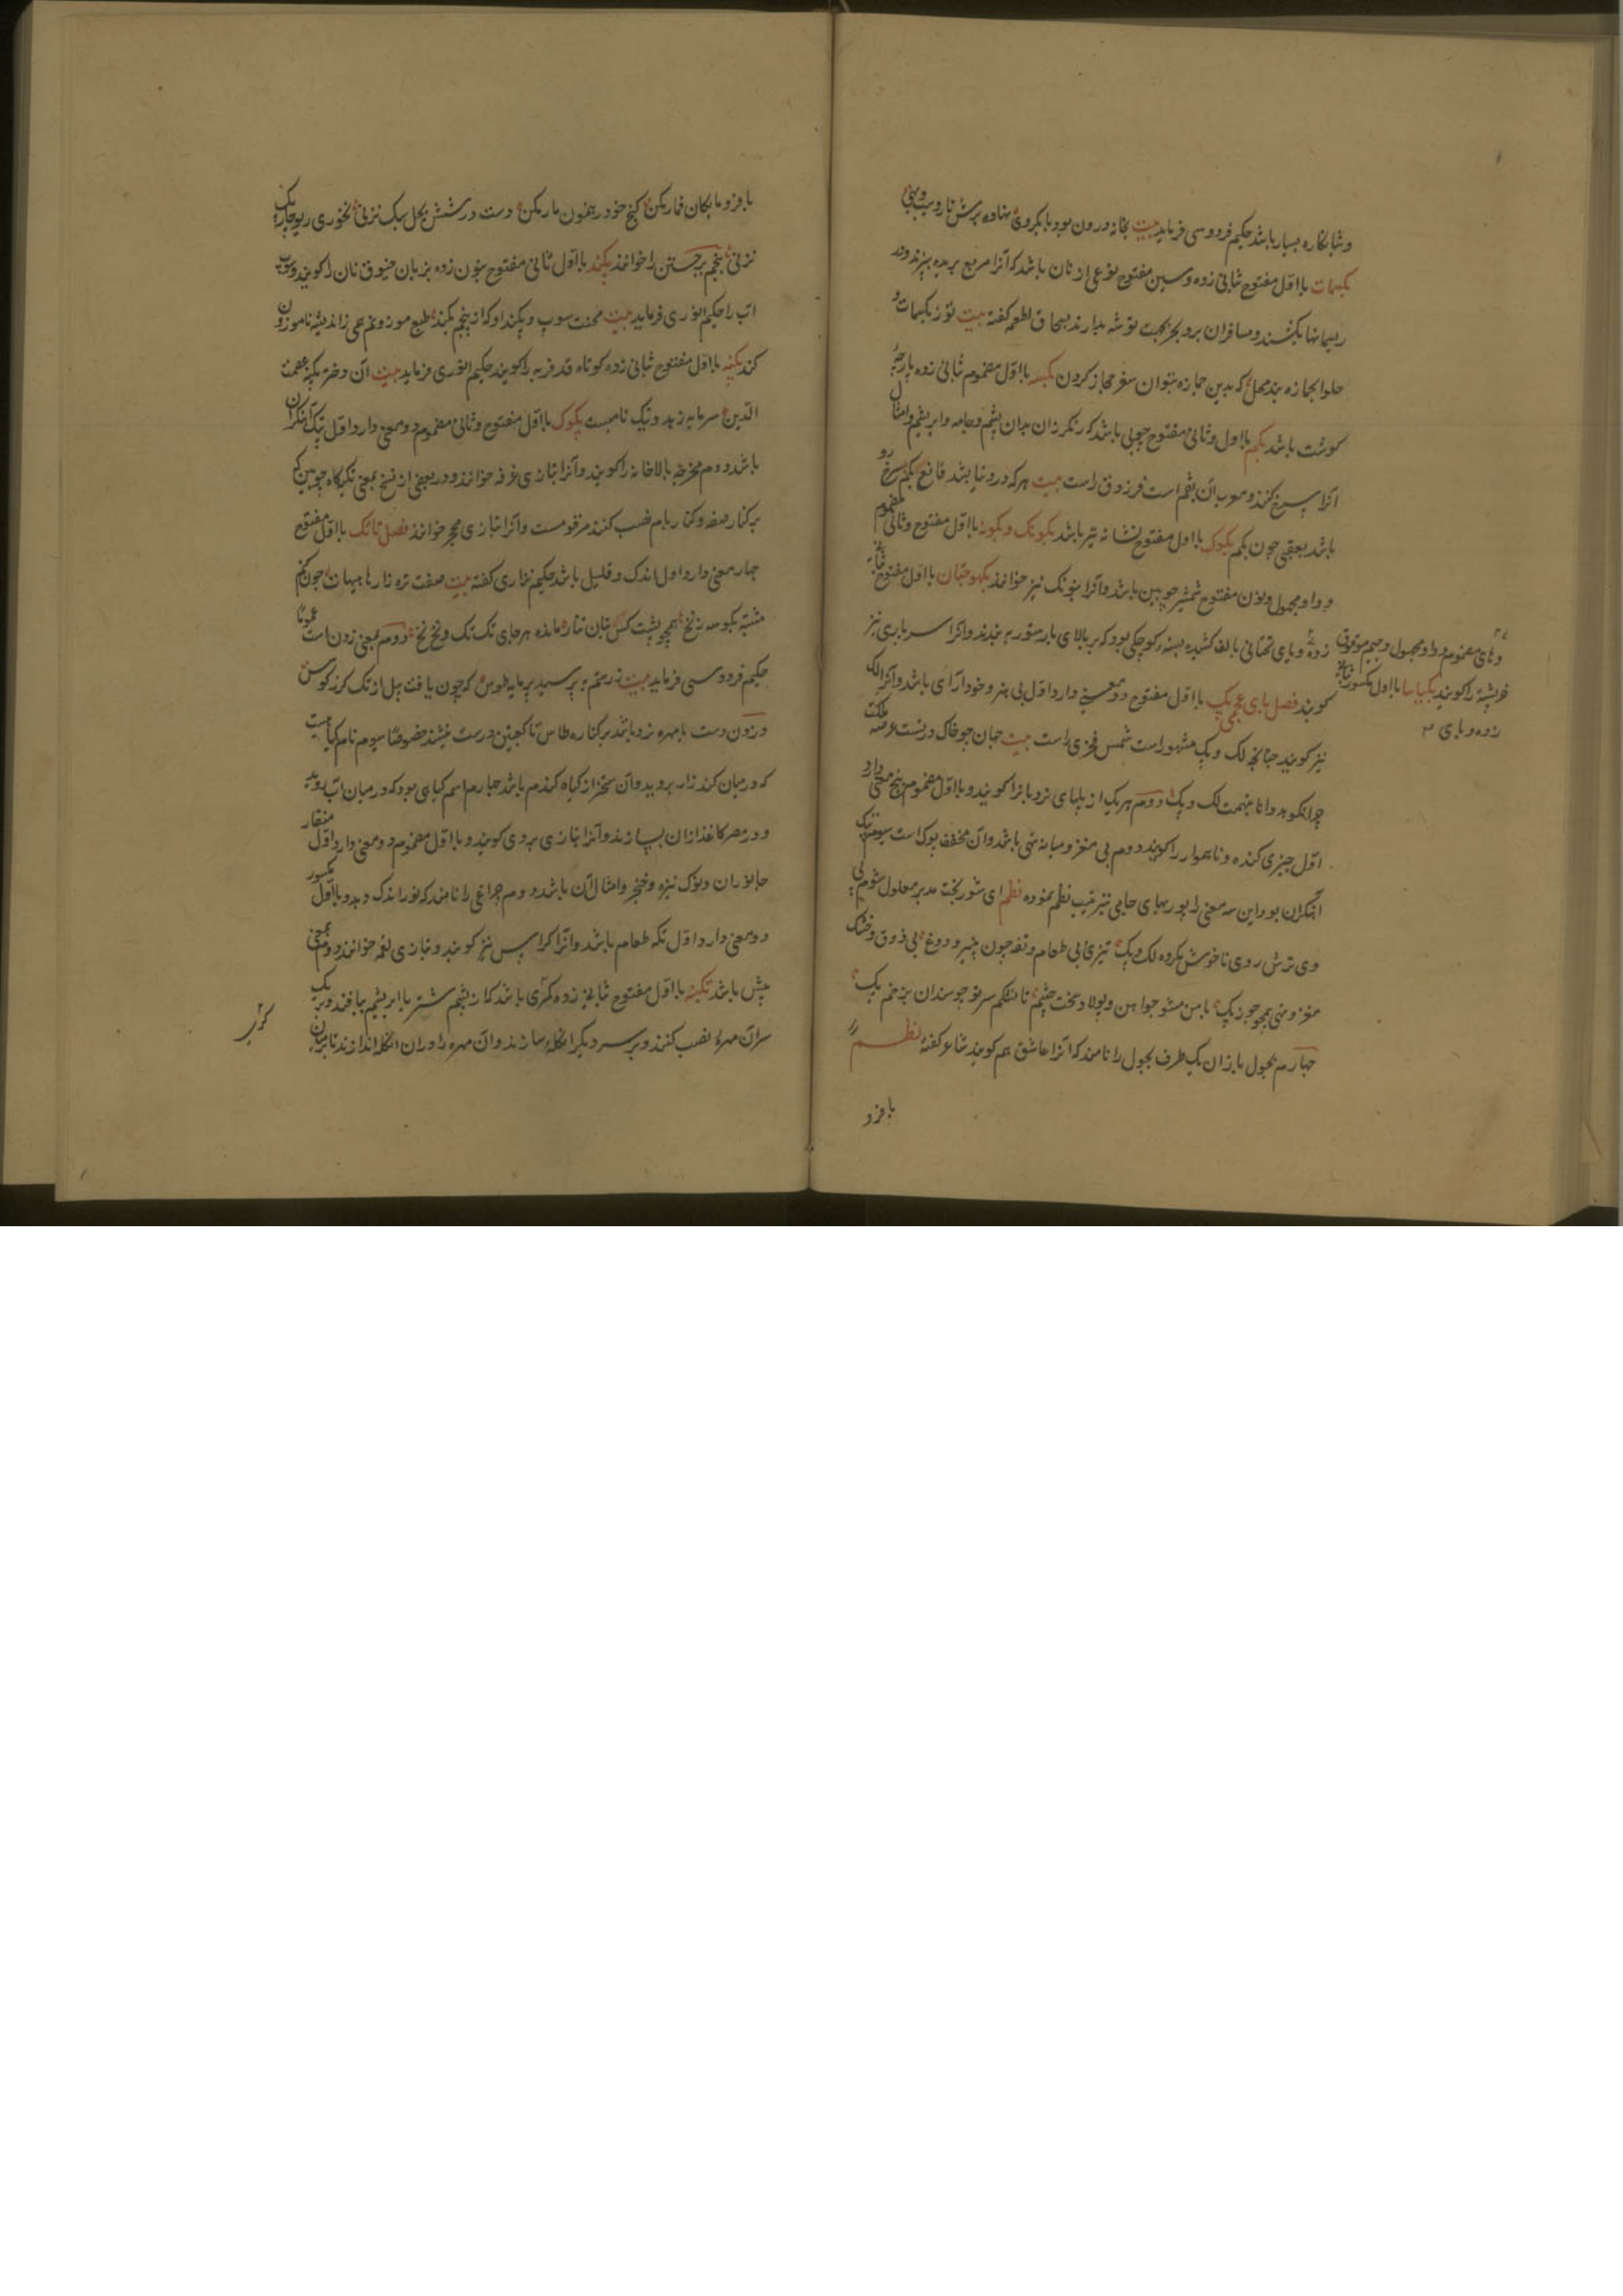 و شالنکاره بسیار باشد حکیم فردوسی فرماید بیت بخانه درون بود با یکروی نهاده برش نار و سیب و بهی
بکسمات بااول مفتوح ثانی زده و سین مفتوح نوعی از نان باشد که آنرا مربع بریده بپزند و در
ریسمانها بکشند و مسافران برو بحر بجهت توشه بدارند بسحاق اطعمه گفته بیت توز بکسمات و
حلوا بجمازه بند محمل که بدین جمازه بتوان سفر حجاز کردن بکسه بااول مضموم ثانی زده پارچه
کوشت باشد بکم بااول و ثانی مفتوح چوبی باشد که رنگرزان بدان پشم و جامه و ابریشم و امثال
آنرا سرخ کنند و معرب آن بقم است فرزدق راست بیت هرکه در دنیا بشد قانع بکم سرخ رو
باشد بعقبی چون بکم بکوک بااول مفتوح نشانه تیر باشد بکونک و بکونه بااول مفتوح و ثانی مضموم
و واو مجهول و نون مفتوح شمشیر چوبین باشد و آنرا بنونک نیز خوانند بکهوجتان بااول مفتوح ثانی
زده و یای تحتانی بالف کشیده پسته کوچکی بود که بر بالای بار ستور به بندند و آنرا سرباری نیز
و های مضموم و واو مجهول و جیم موقوف
خربشته را کویند بکیاسا بااول مکسور ثانی
زده و یای
کویند فصل بای عجمی پک بااول مفتوح دو معنی دارد اول بی هنر و خودآرای باشد و آنرا لک
نیز کویند چنانچه لک و پک مشهور است شمس فخری راست بیت جهان جو خاک درتست عرصه ملکت
چرانکوید دانا بنهمت لک و پک دوم هر یک از پلهای نردبانرا کویند و بااول مضموم پنج معنی دارد
اول چیزی کنده و ناهموار را کویند دوم بی مغز و میانه تهی باشد و آن مخفف پوک است سوم پتک
آهنکران بود این سه معنی را پوربهای جامی بترتیب نظم نموده نظم ای شوربخت مدبر معلول شوم پی
وی ترش روی ناخوش مکروه لک و پک تیزی بی طعام و تفه چون پنیر و دوغ بی ذوق و خشک
مغز و تهی همچو جوز پک با من مشو جو آهن و پولاد سخت چشم تا نشکنم سر تو جو سندان بزخم پک
چهارم بجول بازان یک طرف بجول را نامند که آنرا عاشق هم کویند شاعر کفته نظم
بافزو
بافزو ماپکان قمار مکن گنج خود رهنون مار مکن دست در شش بجل سبک نزنی نخوری ریو جار پک
نزنی پنجم برجستن را خوانند پکند بااول ثانی مفتوح بنون زده بزبان خیوق نان را کویند و سوپ
آب را حکیم انوری فرماید بیت محنت سوپ و پکند او که از پنجم بکند طبع موزونم همی ز اندیشه ناموزون
کند پکنه بااول مفتوح ثانی زده کوتاه قد فربه را کویند حکیم انوری فرماید بیت آن دختر پکنه عصمت
الدین سرمایه زهد و نیک نامیست پکوک بااول مفتوح و ثانی مضموم دو معنی دارد اول پتک آهنگران
باشد دوم مخرجه بالاخانه را کویند و آنرا بتازی غرفه خوانند و در بعضی از نسخ بمعنی تکیکاه چوبین که
بر کنار صفه و کنار بام نصب کنند مرقومست و آنرا بتازی محجر خوانند فصل تا تک بااول مفتوح
چهار معنی دارد اول اندک و قلیل باشد حکیم نزاری گفته بیت صفت تره زارها هیهات چون کنم
مثبته بکوسه زنخ همچو پشت کس بتان تتار مانده هر جای تک تک و نخ نخ دوم بمعنی زدن است عموما
حکیم فردوسی فرماید بیت ز رستم به پرسید پرمایه طوس که چون یافت پیل از تک کرز کوس
و زدن دست بامهره نرد باشد بر کناره طاس تا کعبتین درست نشیند خصوصا سیوم نام کیاهیست
که در میان کندزار بروید و آن سختر از کیاه کندم باشد چهارم اسم کیاهی بود که در میان آب روید
و در مصر کاغذ از آن بسازند و آنرا بتازی بردی کویند و بااول مضموم دو معنی دارد اول منقار
جانوران و نوک نیزه و خنجر و امثال آن باشد دوم چراغی را نامند که نور اندک دهد و بااول مکسور
دو معنی دارد اول تکه طعام باشد و آنرا کراس نیز کویند و بتازی لقمه خوانند دوم بمعنی
پیش باشد تکینه بااول مفتوح ثانی زده کمری باشد که از پشم شتر یا ابریشم ببافند و بر یک
سر آن مهره نصب کنند و بر سر دیکر انکله سازند و آن مهره را در ان انکله اندازند تا بر میان